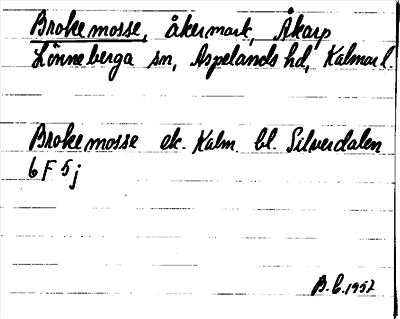 Brokemosse, åkermark, Åkarp
Lönneberga sn, Aspelands hd, Kalmar l.
Brokemosse ek. Kalm. bl. Silverdalen
6 F 5 j
B.C. 1957